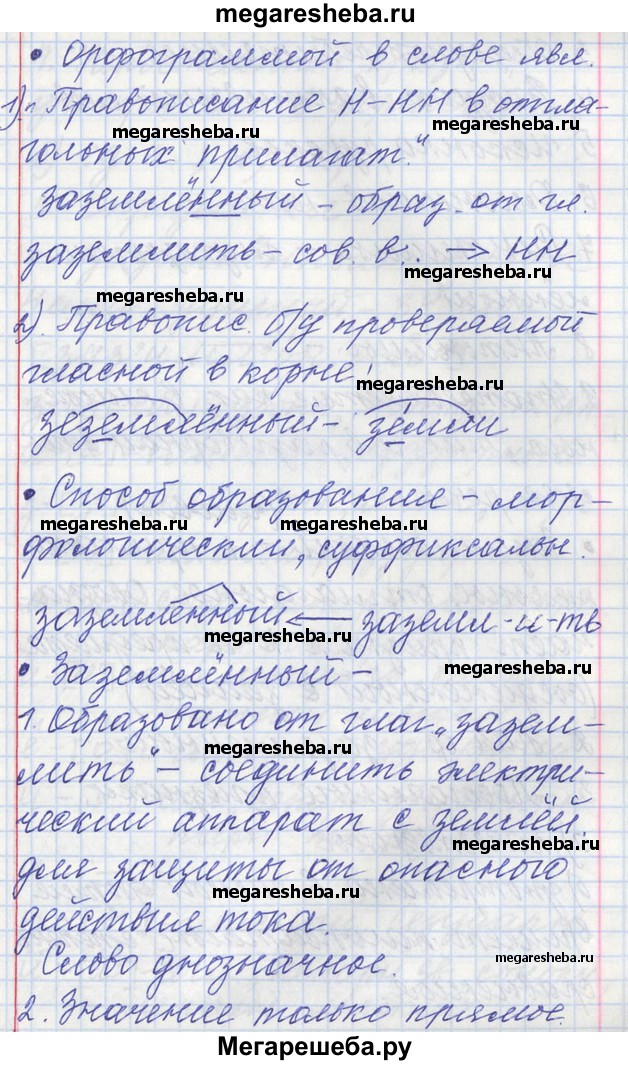 megaresheba.ru
• Орфограммой в слове явл.
1) „Правописание Н-НН в отгла-
megaresheba.ru megaresheba.ru
гольных прилагат."
заземлённый - образ. от гл.
заземлить - сов. в. → НН
megaresheba.ru
megaresheba.ru
2). Правопис. б/у проверяемой
гласной в корне!
megaresheba.ru
зеземлённый - зе́мли
• Способ образования - мор-
megaresheba.ru megaresheba.ru
фологический, суффиксальн.
заземлённый ← заземл-и-ть
megaresheba.ru
• Заземлённый -
megaresheba.ru
1. Образовано от глаг. „зазем-
megaresheba.ru
лить" - соединить электри-
ческий аппарат с землёй
megaresheba.ru
для защиты от опасного
megaresheba.ru
действия тока.
Слово днозначное.
megaresheba.ru
2. Значение только прямое.
Мегарешеба.ру